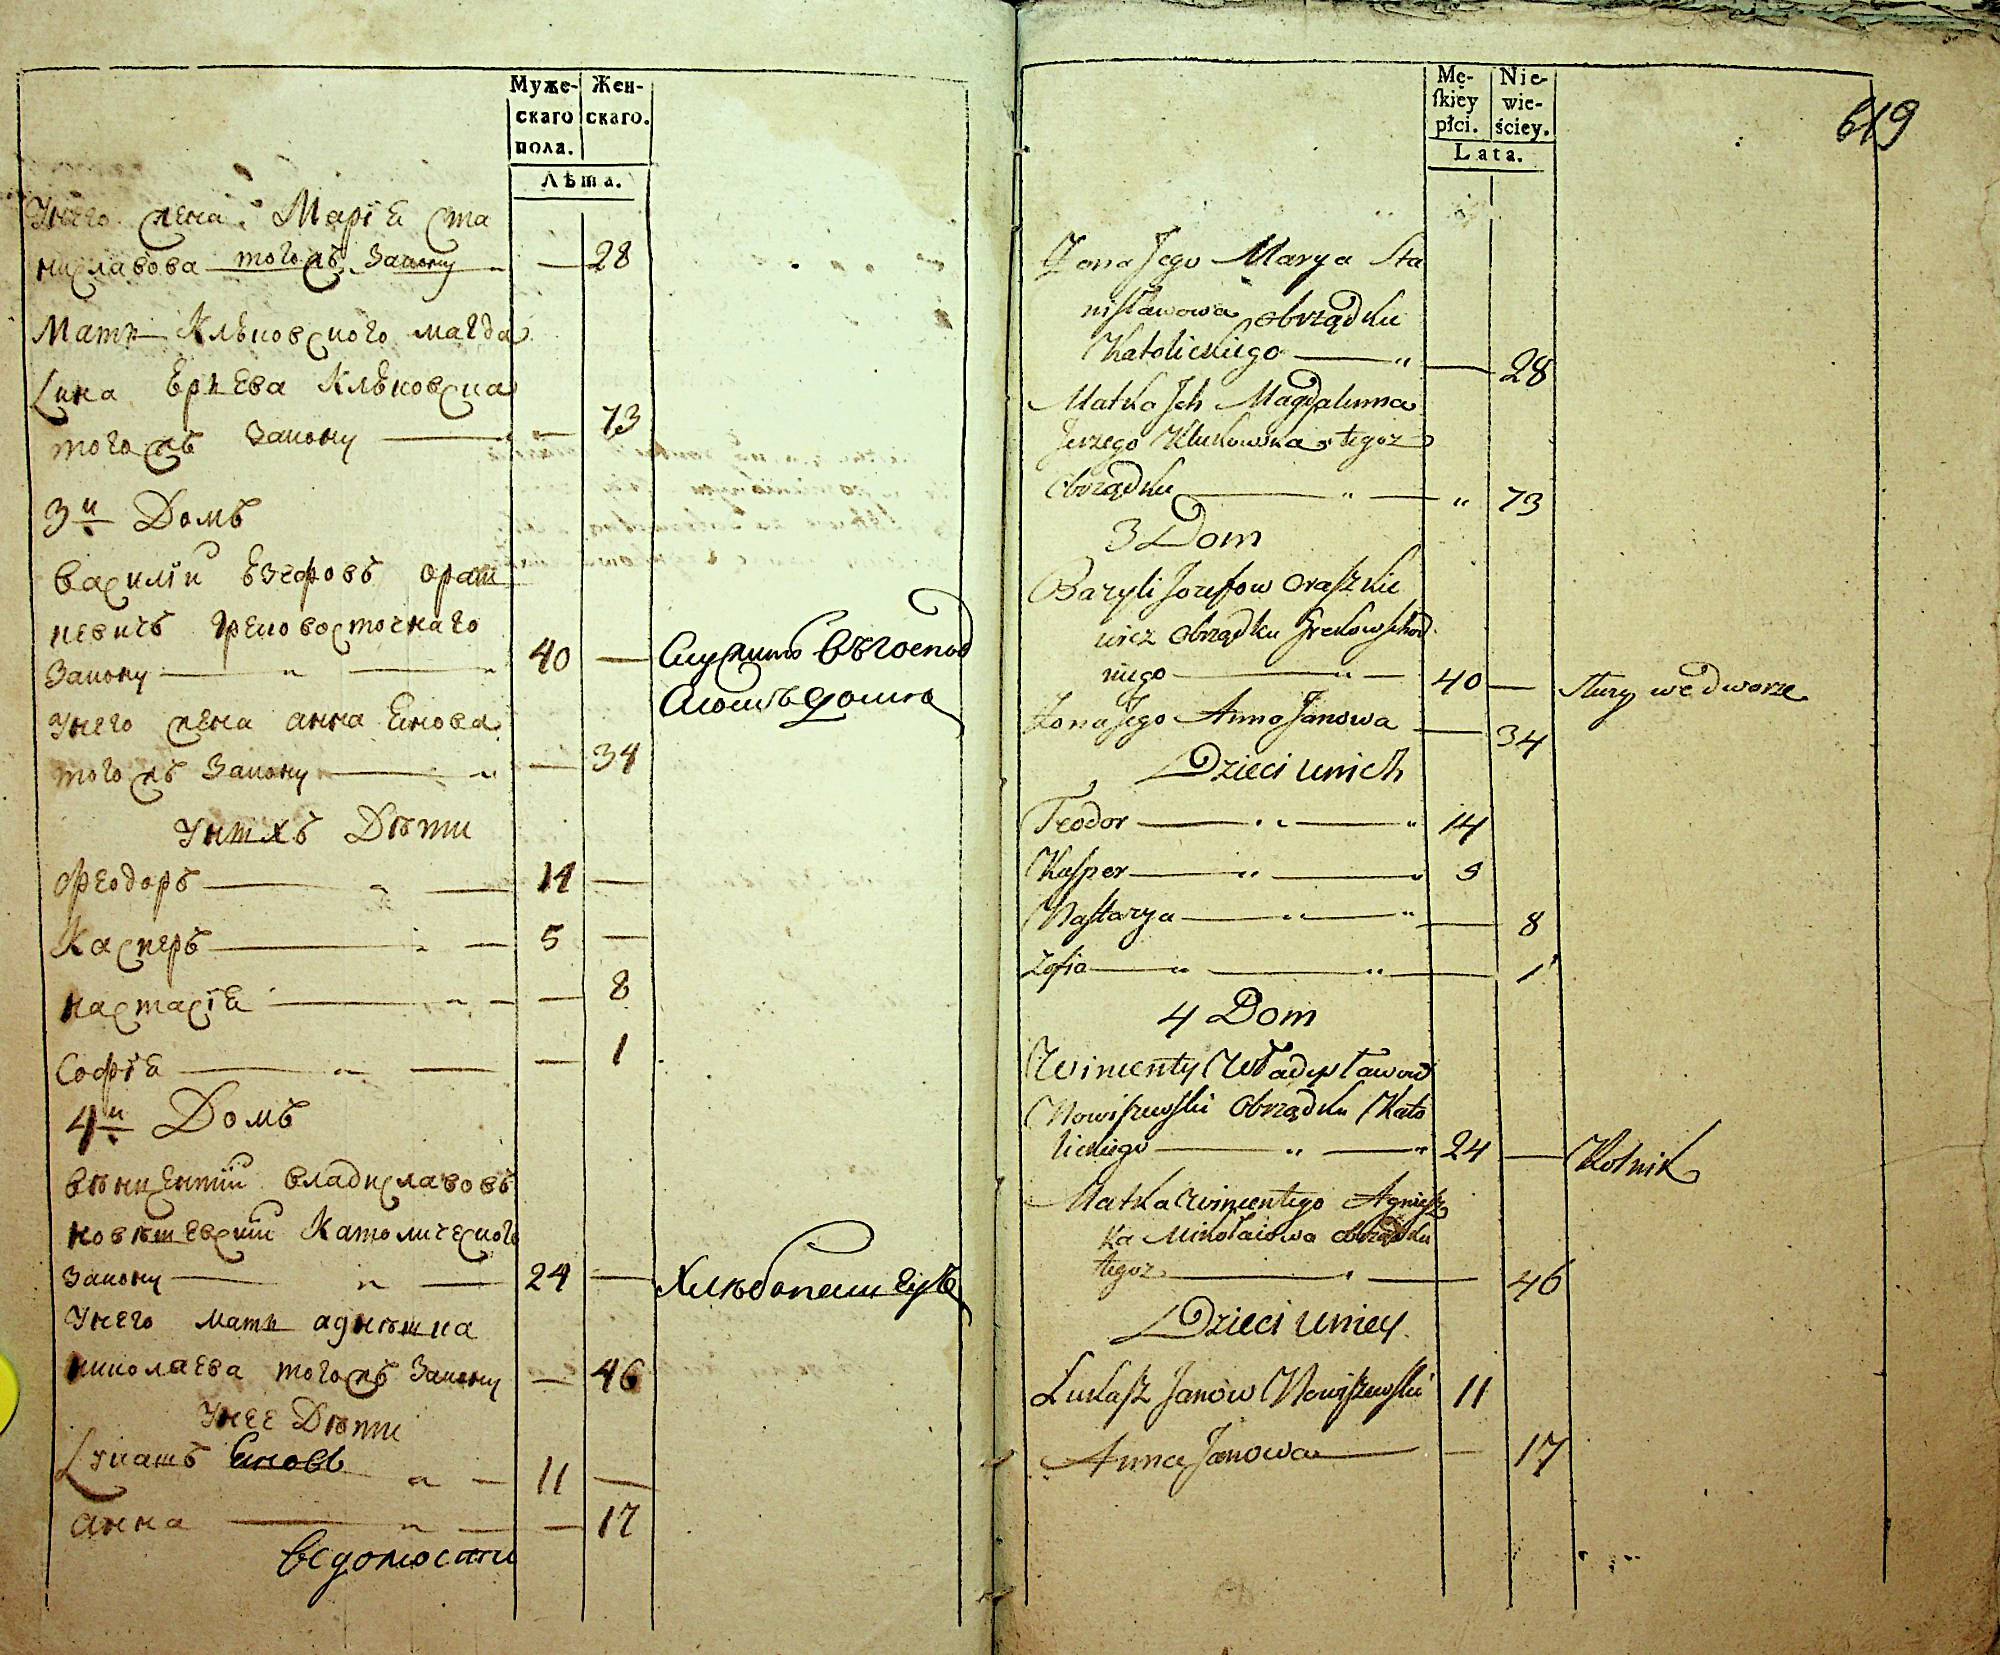 Муже-
скаго
пола.
Жен-
скаго.
Лѣта.
Унего жена Марiѣ Ста
ниславова тогожъ Закону — 28
Мать Клѣковского Магда
лена Ерьева Клѣковска
тогожъ Закону — 73
3й Домъ
Василiй Езефовъ Ораш
кевичъ Грековосточнаго
Закону — 40 — Служитъ въ господ
скомъ домѣ
Унего жена анна Енова
тогожъ Закону — 34
Унихъ Дѣти
Феодоръ — 14 —
Касперъ — 5 —
настасiѣ — 8
Софiѣ — 1
4й Домъ
вѣнцентiй владиславовъ
новѣшевскiй Католического
Закону — 24 — Хлѣбопашецъ
Унего мать агнѣшка
николаева тогожъ Закону — 46
Унее Дѣти
Лукашъ Еновъ — 11 —
анна — 17
ведомости
Mę-
ſkiey
płci.
Nie-
wie-
ściey.
Lata.
619
Żona Jego Marya Sta
nisławowa obrządku
Katolickiego — 28
Matka Jch Magdalenna
Jerzego Klukowska tegoz
Obrządku — 73
3 Dom
Bazyli Jozefow Oraszkie
wicz Obrządku Grekowschod
niego — 40 — słuzy we dworze
Zona Jego Anna Janowa — 34
Dzieci unich
Teodor — 14
Kasper — 5
Nastazya — 8
Zofia — 1
4 Dom
Wincenty Władysławow
Nowiszewski Obrządku Kato
lickiego — 24 — Rolnik
Matka Wincentego Agnisz
ka Mikołaiowa obrządku
tegoz — 46
Dzieci uniey
Lukasz Janow Nowiszewski 11
Anna Janowa — 17